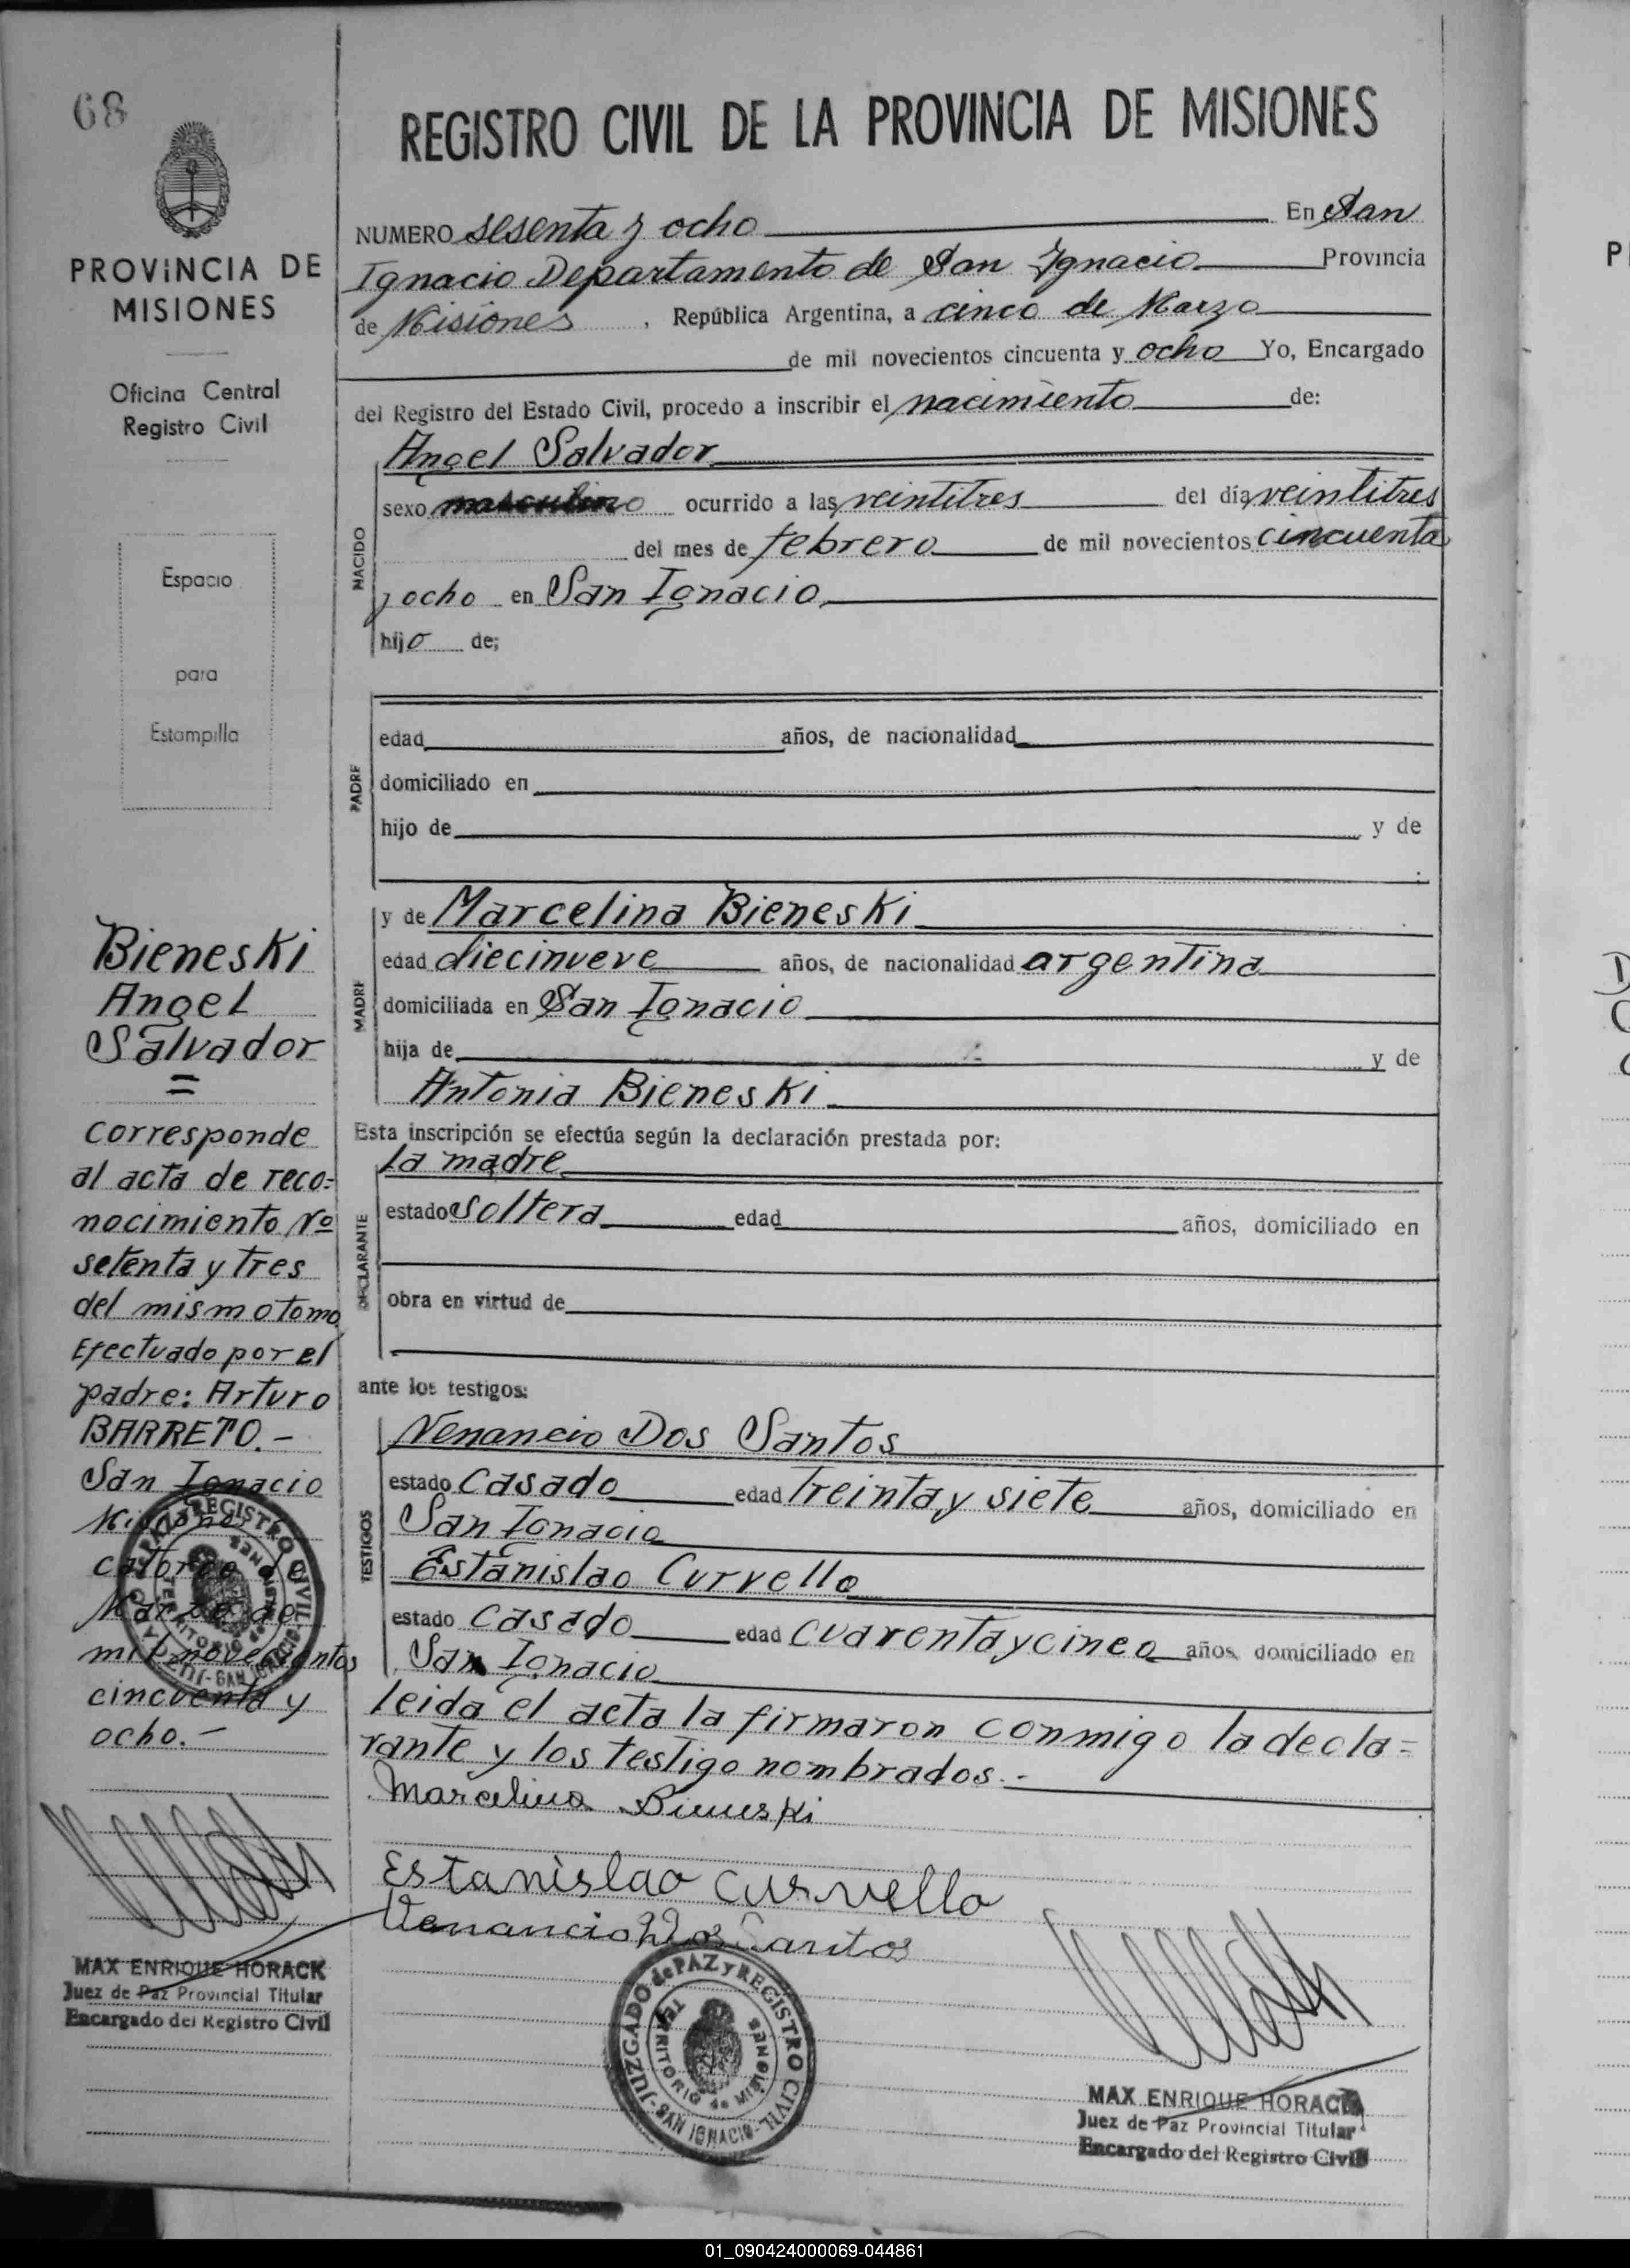 68
PROVINCIA DE
MISIONES
Oficina Central
Registro Civil
Espacio
para
Estampilla
Bieneski
Angel
Salvador
=
corresponde
al acta de reco=
nocimiento Nº
setenta y tres
del mismo tomo
Efectuado por el
padre: Arturo
BARRETO.-
San Ignacio
Misiones
catorce de
Marzo de
mil novecientos
cincuenta y
ocho.-
MAX ENRIQUE HORACK
Juez de Paz Provincial Titular
Encargado del Registro Civil
REGISTRO CIVIL DE LA PROVINCIA DE MISIONES
NUMERO sesenta y ocho En San
Ignacio Departamento de San Ignacio Provincia
de Misiones, República Argentina, a cinco de Marzo
de mil novecientos cincuenta y ocho Yo, Encargado
del Registro del Estado Civil, procedo a inscribir el nacimiento de:
NACIDO
Angel Salvador
sexo masculino ocurrido a las veintitres del día veintitres
del mes de febrero de mil novecientos cincuenta
y ocho en San Ignacio
hijo de;
PADRE
edad años, de nacionalidad
domiciliado en
hijo de y de
MADRE
y de Marcelina Bieneski
edad diecinueve años, de nacionalidad argentina
domiciliada en San Ignacio
hija de y de
Antonia Bieneski
Esta inscripción se efectúa según la declaración prestada por:
DECLARANTE
la madre
estado soltera edad años, domiciliado en
obra en virtud de
ante los testigos:
TESTIGOS
Venancio Dos Santos
estado casado edad treinta y siete años, domiciliado en
San Ignacio
Estanislao Curvello
estado casado edad cuarenta y cinco años, domiciliado en
San Ignacio
leida el acta la firmaron conmigo la decla=
rante y los testigo nombrados.-
Marcelina Bieneski
Estanislao Curvello
Venancio Dos Santos
JUZGADO de PAZ y REGISTRO CIVIL
TERRITORIO de MISIONES
SAN IGNACIO
MAX ENRIQUE HORACK
Juez de Paz Provincial Titular
Encargado del Registro Civil
01_090424000069-044861